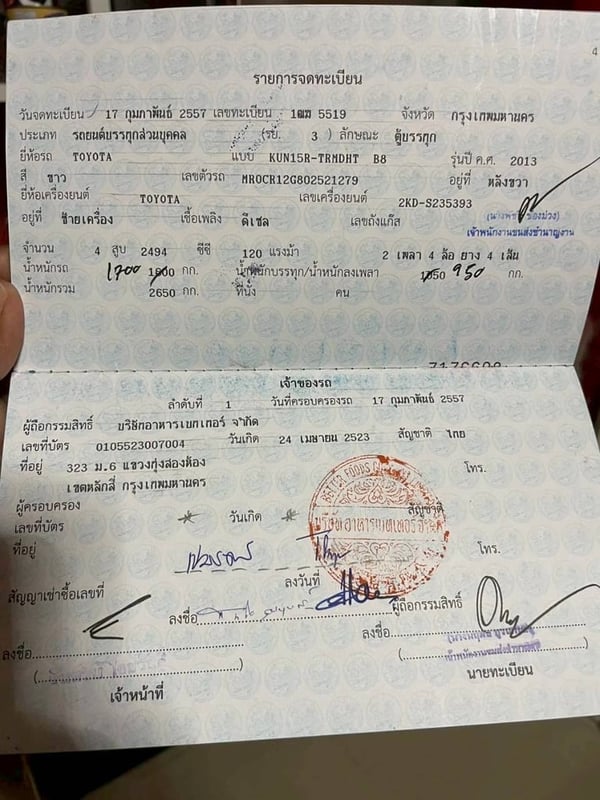 4
รายการจดทะเบียน
วันจดทะเบียน 17 กุมภาพันธ์ 2557 เลขทะเบียน 1ฒฒ 5519 จังหวัด กรุงเทพมหานคร
ประเภท รถยนต์บรรทุกส่วนบุคคล (รย. 3 ) ลักษณะ ตู้บรรทุก
ยี่ห้อรถ TOYOTA แบบ KUN15R-TRMDHT B8 รุ่นปี ค.ศ. 2013
สี ขาว เลขตัวรถ MR0CR12G802521279 อยู่ที่ หลังขวา
ยี่ห้อเครื่องยนต์ TOYOTA เลขเครื่องยนต์ 2KD-S235393
อยู่ที่ ซ้ายเครื่อง เชื้อเพลิง ดีเซล เลขถังแก๊ส
เจ้าพนักงานขนส่งชำนาญงาน
จำนวน 4 สูบ 2494 ซีซี 120 แรงม้า 2 เพลา 4 ล้อ ยาง 4 เส้น
น้ำหนักรถ 1700 กก. น้ำหนักบรรทุก/น้ำหนักลงเพลา 950 กก.
น้ำหนักรวม 2650 กก. ที่นั่ง คน
เจ้าของรถ
ลำดับที่ 1 วันที่ครอบครองรถ 17 กุมภาพันธ์ 2557
ผู้ถือกรรมสิทธิ์ บริษัทอาหารเบทเทอร์ จำกัด
เลขที่บัตร 0105523007004 วันเกิด 24 เมษายน 2523 สัญชาติ ไทย
ที่อยู่ 323 ม.6 แขวงทุ่งสองห้อง โทร.
เขตหลักสี่ กรุงเทพมหานคร
ผู้ครอบครอง
เลขที่บัตร * วันเกิด * สัญชาติ
ที่อยู่ โทร.
BETTER FOODS
บริษัท อาหารเบทเทอร์ จำกัด
สัญญาเช่าซื้อเลขที่ ลงวันที่
ลงชื่อ ผู้ถือกรรมสิทธิ์
ลงชื่อ ลงชื่อ
เจ้าหน้าที่ นายทะเบียน